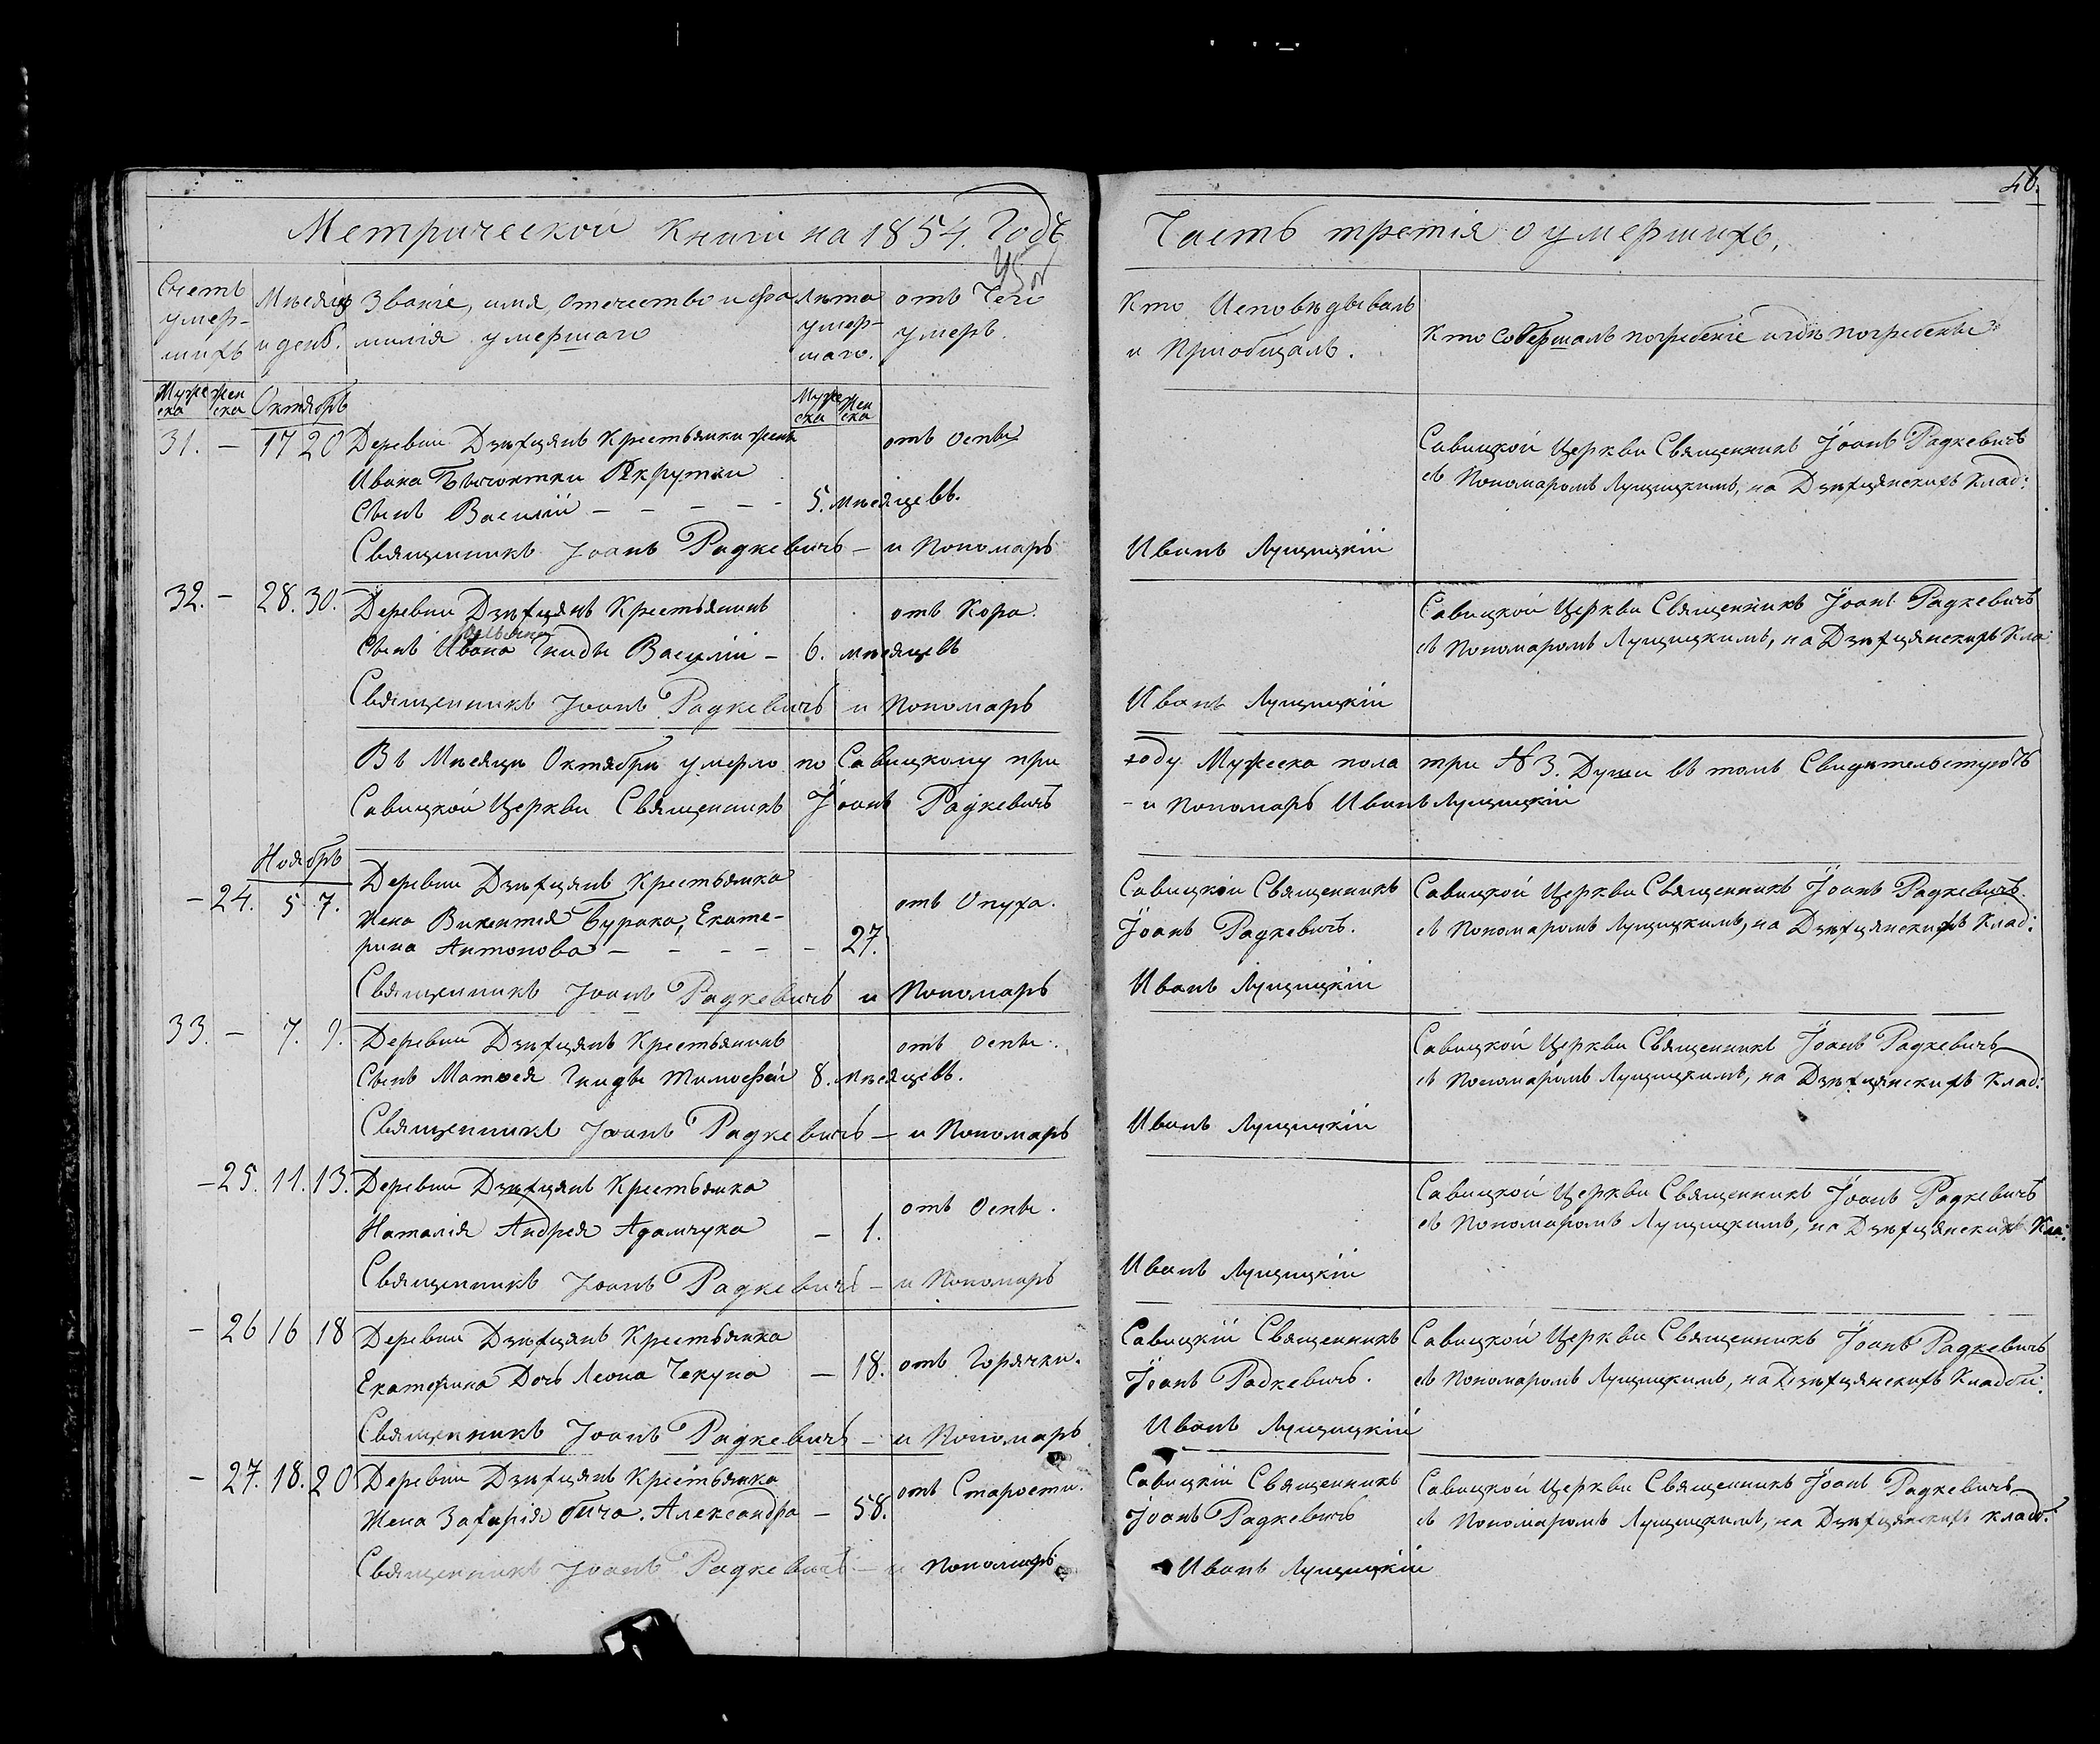 46.
Метрической Книги на 1854. Годъ
Часть третія о умершихъ.
Счетъ умер-шихъ
Мѣсяцъ и день.
Званіе, имя, отечество и фа
милія умершаго
Лѣта умер-шаго.
отъ Чего умеръ.
Кто Исповѣдывалъ
и Пріобщалъ.
Кто Совершалъ погребеніе и гдѣ погребены
Муже ска
Жен ска
Октябрь
Муже ска
Жен ска
31. – 17 20 Деревни Дзѣхцянъ Крестьянки жены отъ оспы
Ивана
Сынъ Василій – – – – – 5. мѣсяцевъ.
Савицкой Церкви Священникъ Іоанъ Радкевичъ
съ Пономаромъ Лущицкимъ, на Дзѣхцянскихъ Клад:
Священникъ Іоанъ Радкевичъ – и Пономарь Иванъ Лущицкій
32. – 28. 30. Деревни Дзѣхцянъ Крестьянинъ отъ Кора.
Сынъ Ивана Гниды Василій – 6. мѣсяцевъ
Савицкой Церкви Священникъ Іоанъ Радкевичъ
съ Пономаромъ Лущицкимъ, на Дзѣхцянскихъ Кла:
Священникъ Іоанъ Радкевичъ и Пономарь Иванъ Лущицкій
Въ Мѣсяцѣ Октябрѣ умерло по Савицкому при
ходу Мужеска пола три № 3. Души въ томъ Свидѣтельствуютъ
Савицкой Церкви Священникъ Іоанъ Радкевичъ
– и Пономарь Иванъ Лущицкій
Ноябрь
– 24. 5 7. Деревни Дзѣхцянъ Крестьянка отъ Опуха.
Жена Викентія Бурака, Екате-
рина Антонова – – – – – 27.
Савицкій Священникъ
Іоанъ Радкевичъ.
Савицкой Церкви Священникъ Іоанъ Радкевичъ
съ Пономаромъ Лущицкимъ, на Дзѣхцянскихъ Клад:
Священникъ Іоанъ Радкевичъ и Пономарь Иванъ Лущицкій
33. – 7. 9. Деревни Дзѣхцянъ Крестьянинъ отъ оспы.
Сынъ Матвея Гниды Тимофей 8. мѣсяцевъ.
Савицкой Церкви Священникъ Іоанъ Радкевичъ
съ Пономаромъ Лущицкимъ, на Дзѣхцянскихъ Клад:
Священникъ Іоанъ Радкевичъ – и Пономарь Иванъ Лущицкій
– 25. 11. 13. Деревни Дзѣхцянъ Крестьянка отъ Оспы.
Наталія Андрея Адамчука – 1.
Савицкой Церкви Священникъ Іоанъ Радкевичъ
съ Пономаромъ Лущицкимъ, на Дзѣхцянскихъ Кла:
Священникъ Іоанъ Радкевичъ – и Пономарь Иванъ Лущицкій
– 26 16 18 Деревни Дзѣхцянъ Крестьянка
Екатерина Дочь Леона Чекуна – 18. отъ Горячки.
Савицкій Священникъ
Іоанъ Радкевичъ.
Савицкой Церкви Священникъ Іоанъ Радкевичъ
съ Пономаромъ Лущицкимъ, на Дзѣхцянскихъ Кладби:
Священникъ Іоанъ Радкевичъ – и Пономарь Иванъ Лущицкій
– 27. 18. 20 Деревни Дзѣхцянъ Крестьянка отъ Старости.
Жена Захарія Бича. Александра – 58.
Савицкій Священникъ
Іоанъ Радкевичъ
Савицкой Церкви Священникъ Іоанъ Радкевичъ
съ Пономаромъ Лущицкимъ, на Дзѣхцянскихъ кладб.
Священникъ Іоанъ Радкевичъ – и Пономарь Иванъ Лущицкій